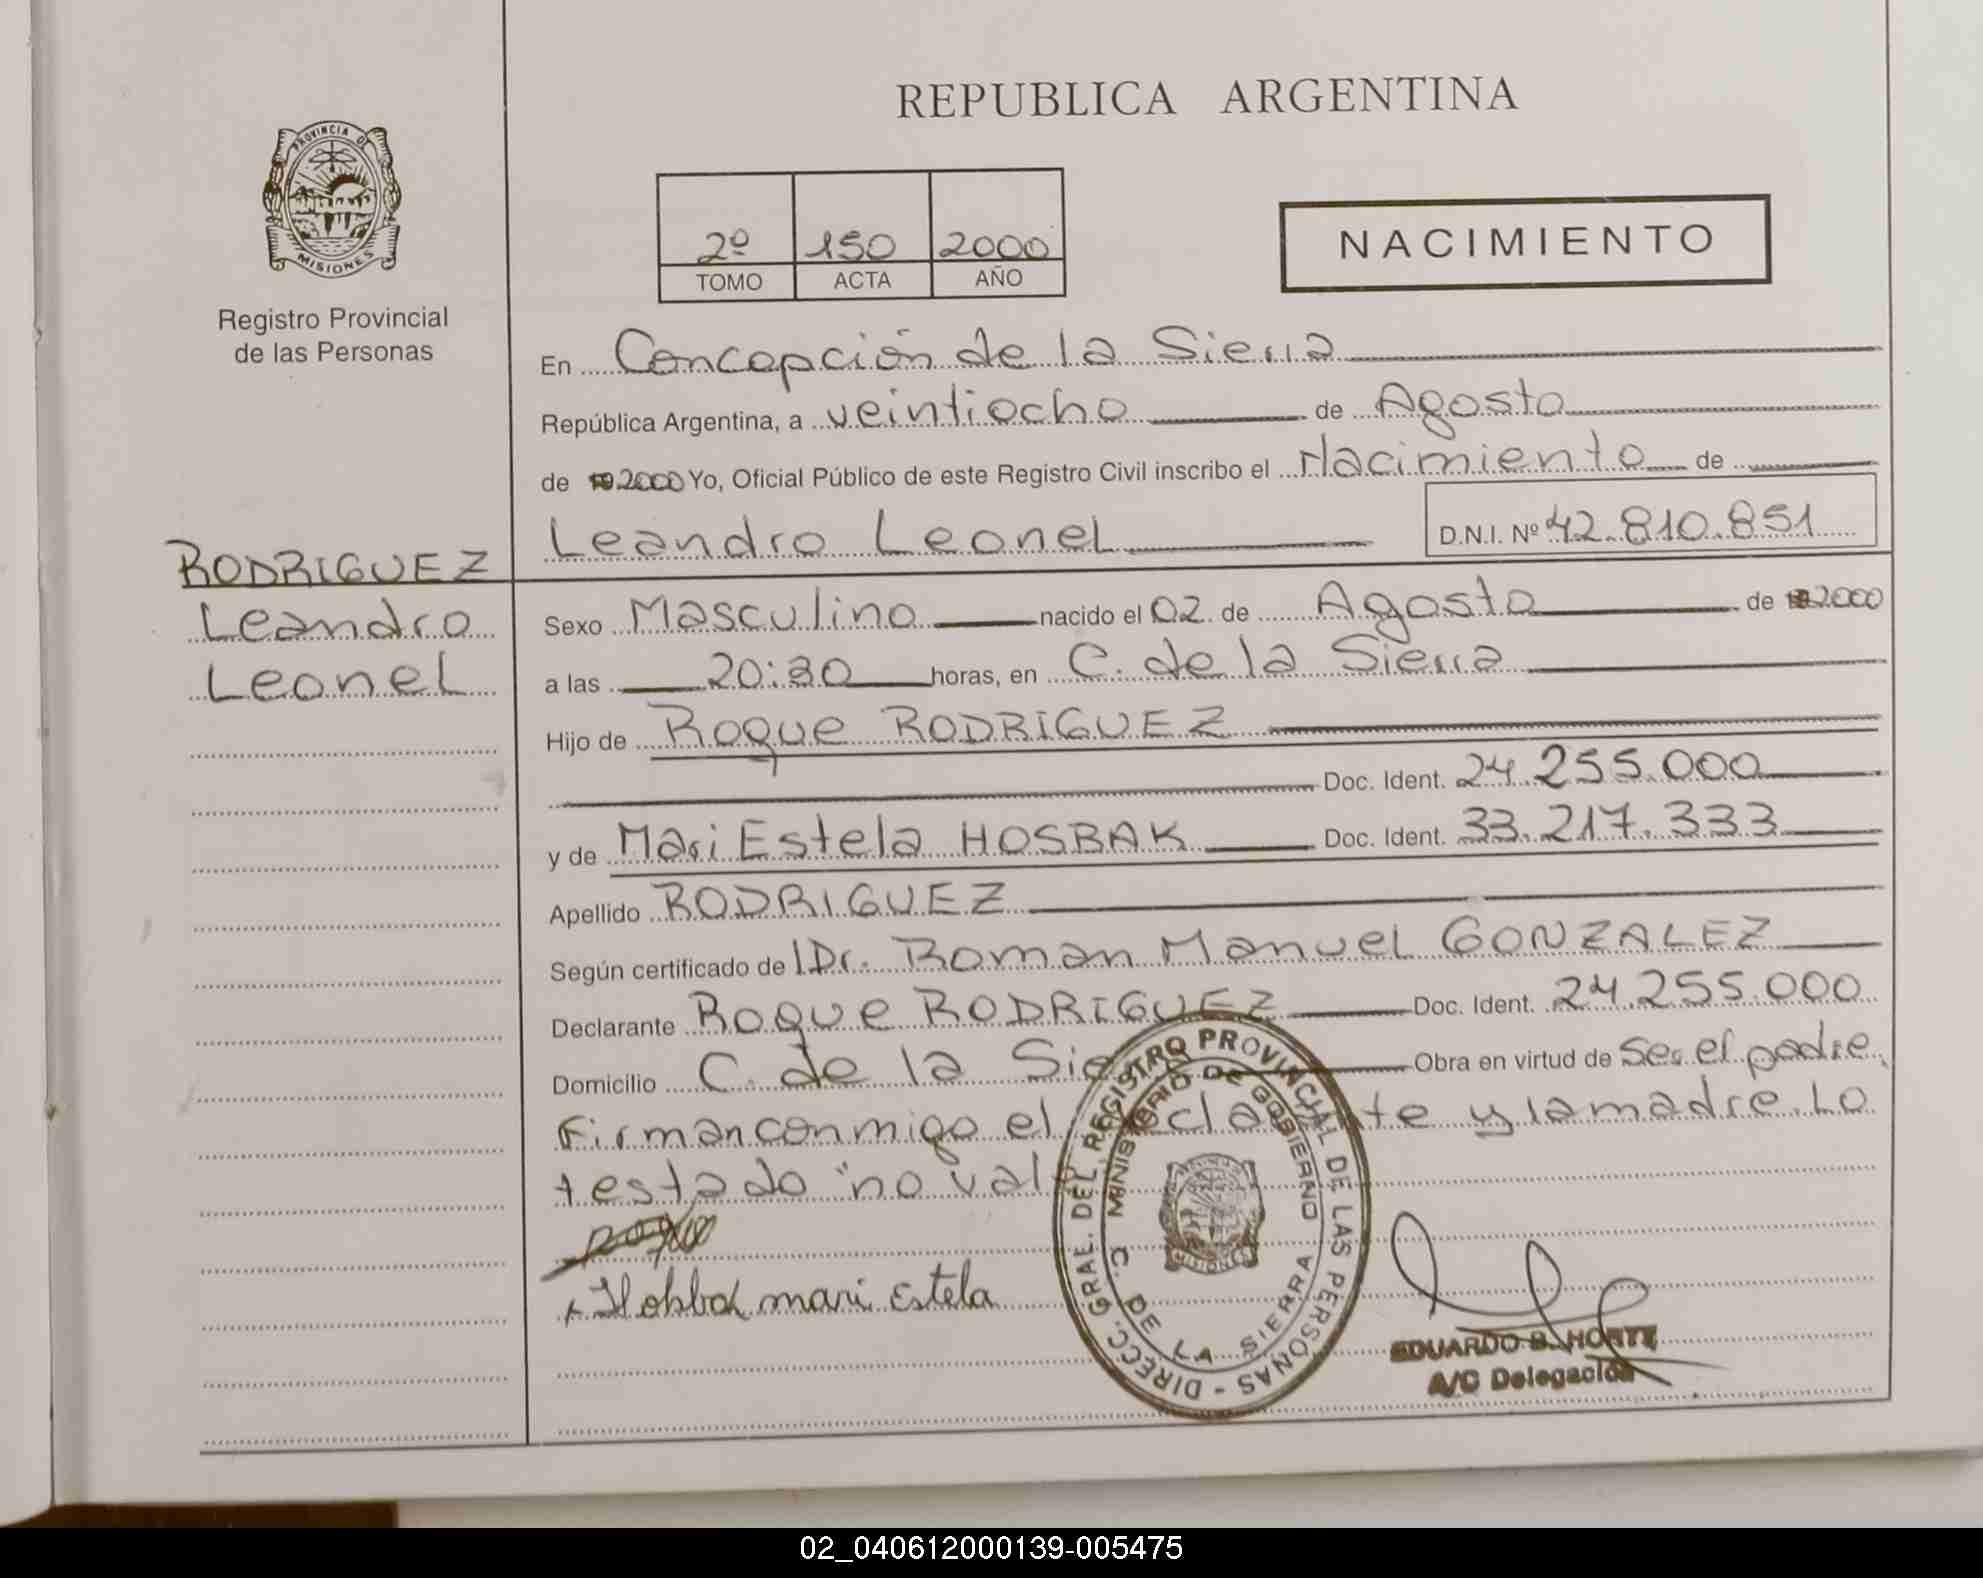 REPUBLICA ARGENTINA
PROVINCIA DE
MISIONES
Registro Provincial
de las Personas
2º 150 2000
TOMO ACTA AÑO
NACIMIENTO
En Concepción de la Sierra
República Argentina, a veintiocho de Agosto
de 19 2000 Yo, Oficial Público de este Registro Civil inscribo el Nacimiento de
Leandro Leonel D.N.I. Nº 42.810.851
RODRIGUEZ
Leandro
Leonel
Sexo Masculino nacido el 02 de Agosto de 19 2000
a las 20:30 horas, en C. de la Sierra
Hijo de Roque RODRIGUEZ
Doc. Ident. 24.255.000
y de Mari Estela HOSBAK Doc. Ident. 33.217.333
Apellido RODRIGUEZ
Según certificado de Dr. Roman Manuel GONZALEZ
Declarante Roque RODRIGUEZ Doc. Ident. 24.255.000
Domicilio C. de la Obra en virtud de ser el padre.
Firman conmigo el declarante y la madre. Lo
testado "no
Mari Estela
DIRECC. GRAL. DEL REGISTRO PROVINCIAL DE LAS PERSONAS -
MINISTERIO DE GOBIERNO
C. DE LA SIERRA
MISIONES
EDUARDO B. HORTE
A/C Delegación
02_040612000139-005475